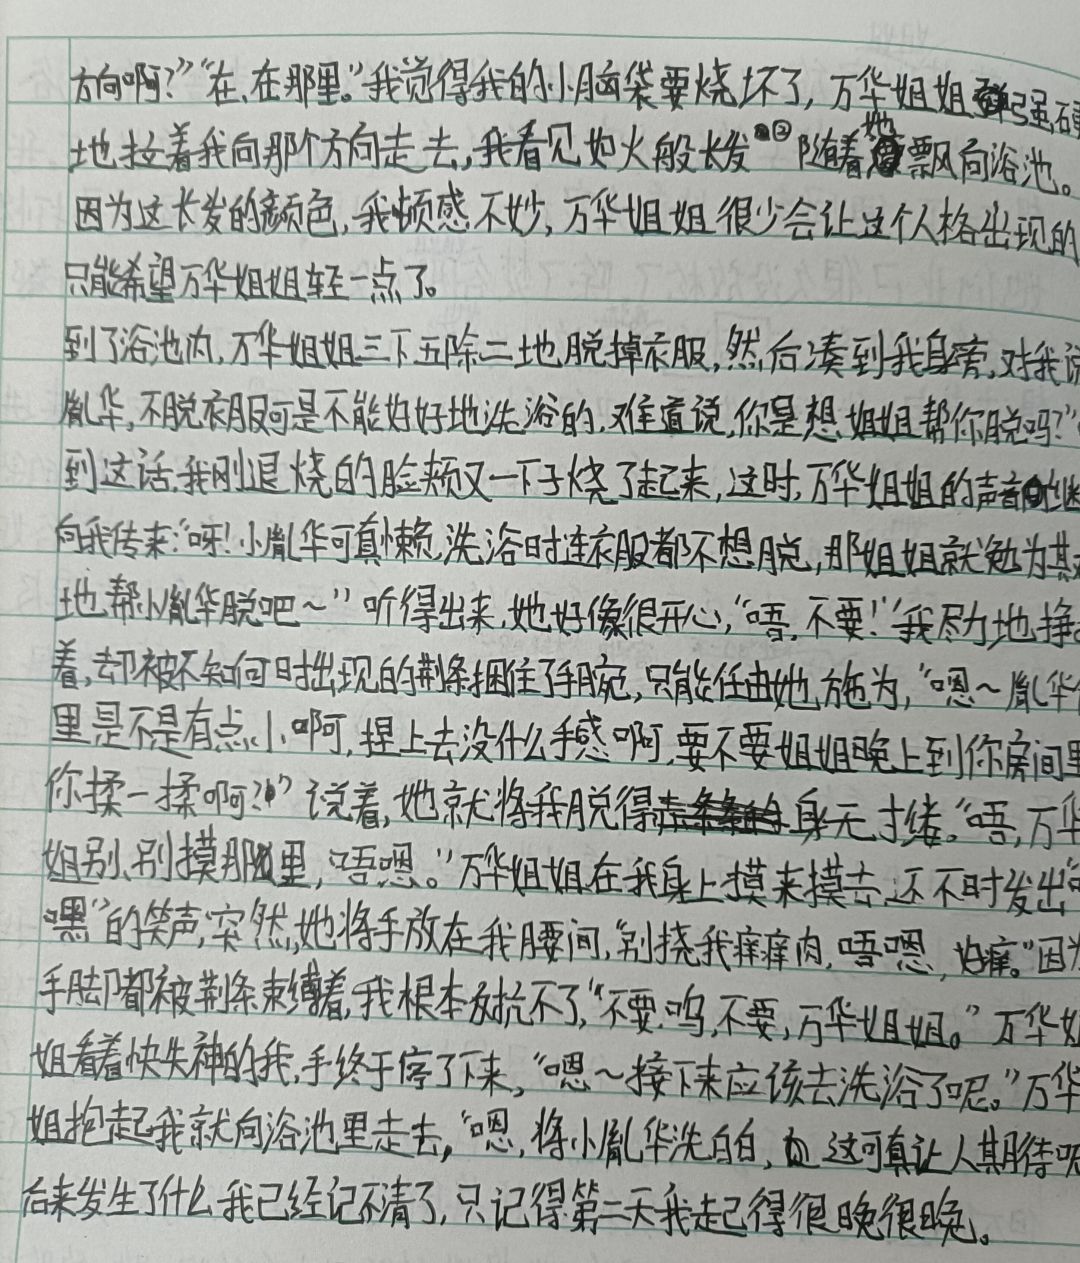 方向啊？”“在、在那里。”我觉得我的小脑袋要烧坏了，万华姐姐强硬
地拉着我向那个方向走去，我看见如火般长发随着她飘向浴池。
因为这长发的颜色，我顿感不妙，万华姐姐很少会让这个人格出现的
只能希望万华姐姐轻一点了。
到了浴池内，万华姐姐三下五除二地脱掉衣服，然后凑到我身旁，对我说
胤华，不脱衣服可是不能好好地洗浴的，难道说，你是想姐姐帮你脱吗？”
到这话，我刚退烧的脸颊又一下子烧了起来，这时，万华姐姐的声音继
向我传来：“呀！小胤华可真懒，洗浴时连衣服都不想脱，那姐姐就勉为其
地帮小胤华脱吧～”听得出来，她好像很开心，“唔，不要！”我尽力地挣
着，却被不知何时出现的荆条捆住了手腕，只能任由她施为，“嗯～胤华
里是不是有点小啊，捏上去没什么手感啊，要不要姐姐晚上到你房间里
你揉一揉啊？”说着，她就将我脱得身无寸缕。“唔，万华
姐别、别摸那里，唔嗯。”万华姐姐在我身上摸来摸去，还不时发出“
嘿”的笑声，突然，她将手放在我腰间，“别挠我痒痒肉，唔嗯，好痒。”因为
手脚都被荆条束缚着，我根本反抗不了，“不要，呜，不要，万华姐姐。”万华姐
姐看着快失神的我，手终于停了下来，“嗯～接下来应该去洗浴了呢。”万华
姐抱起我就向浴池里走去，“嗯，将小胤华洗白白，这可真让人期待呢
后来发生了什么我已经记不清了，只记得第二天我起得很晚很晚。